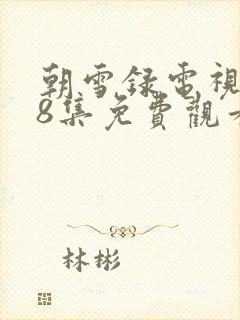 朝雪録電視
8集免費觀
林彬